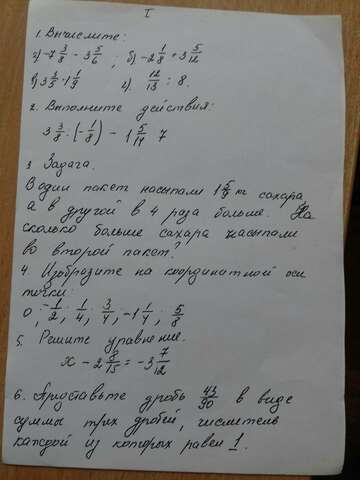 I
1. Вычислите:
а) -7 3/8 - 3 5/6 ; б) -2 1/8 + 3 5/12
в) 3 3/5 · 1 1/9 г) 12/13 : 8.
2. Выполните действия:
3 3/8 : (-1/8) - 1 5/14 · 7
3 Задача.
В один пакет насыпали 1 5/9 кг сахара,
а в другой в 4 раза больше. На
сколько больше сахара насыпали
во второй пакет?
4. Изобразите на координатной оси
точки:
0; -1/2; 1/4; 3/4; -1 1/4; 5/8
5. Решите уравнение.
x - 2 8/15 = -3 7/12
6. Представьте дробь 43/90 в виде
суммы трех дробей, числитель
каждой из которых равен 1.